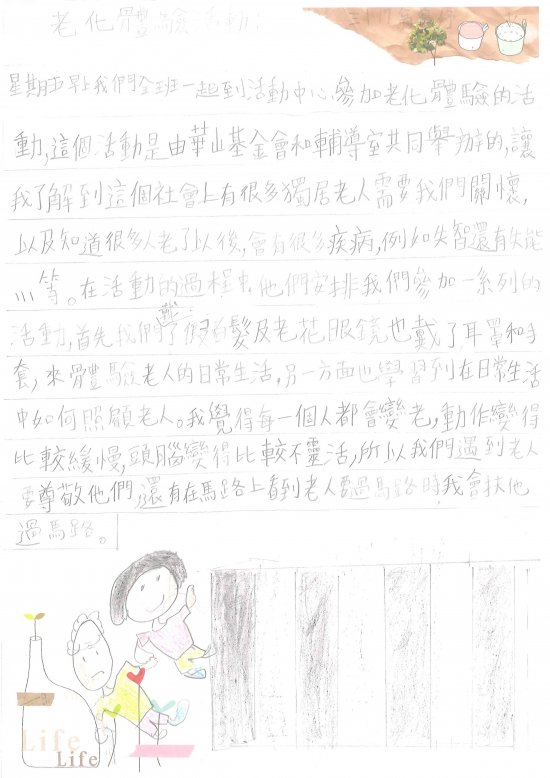 老化體驗活動:
星期五早上我們全班一起到活動中心參加老化體驗的活
動,這個活動是由華山基金會和輔導室共同舉辦的,讓
我了解到這個社會上有很多獨居老人需要我們關懷,
以及知道很多人老了以後,會有很多疾病,例如失智還有失能
...等。在活動的過程中,他們安排我們參加一系列的
活動,首先我們戴了假髮及老花眼鏡也戴了耳罩和手
套,來體驗老人的日常生活,另一方面也學習到在日常生活
中如何照顧老人。我覺得每一個人都會變老,動作變得
比較緩慢,頭腦變得比較不靈活,所以我們遇到老人
要尊敬他們,還有在馬路上看到老人要過馬路時我會扶他
過馬路。
Life
Life